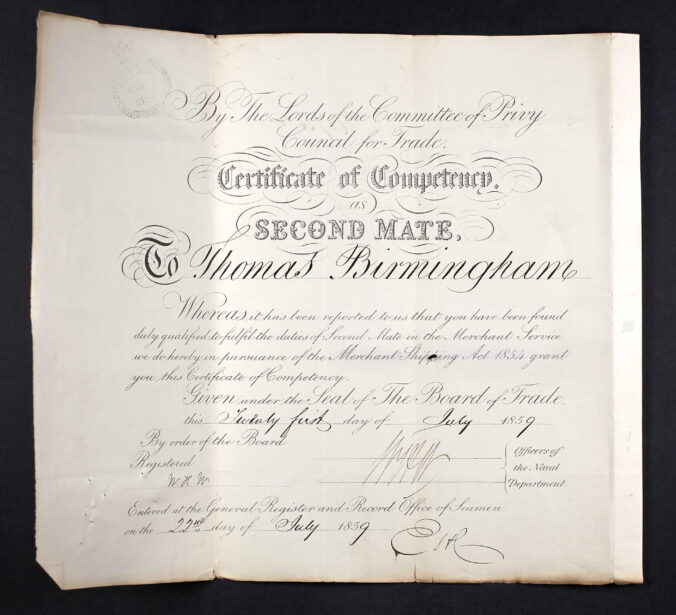 By The Lords of the Committee of Privy
Council for Trade.
Certificate of Competency,
as
SECOND MATE,
To Thomas Birmingham
Whereas it has been reported to us that you have been found
duly qualified to fulfil the duties of Second Mate in the Merchant Service
we do hereby in pursuance of the Merchant Shipping Act 1854 grant
you this Certificate of Competency.
Given under the Seal of The Board of Trade,
this Twenty first day of July 1859
By order of the Board
Registered
Officers of
the Naval
Department
Entered at the General Register and Record Office of Seamen
on the 22nd day of July 1859